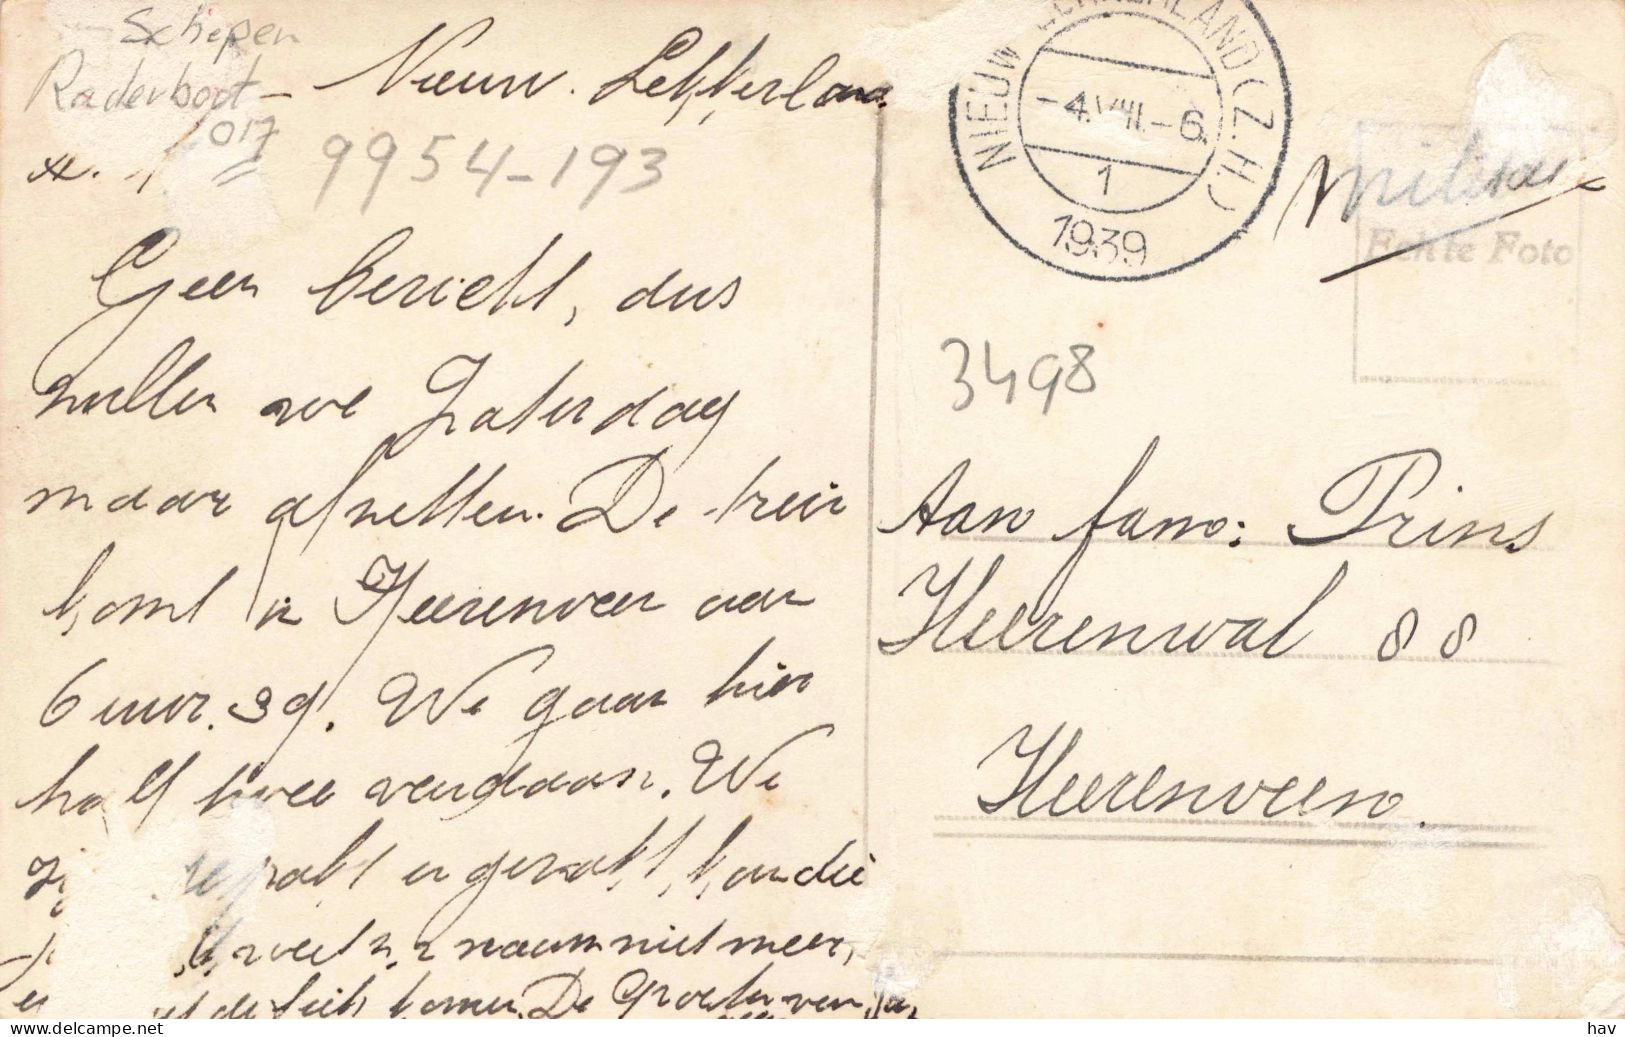 Schepen
Raderboot
017
9954-193
Nieuw. Lekkerland
Geen bericht, dus
zullen we Zaterdag
maar afzetten. De trein
komt in Heerenveen aan
6 uur. 39. We gaan hier
half twee vandaan. We
gepakt en gezakt, kan die
weet z'n naam niet meer,
komen. De Groeten van
NIEUW LEKKERLAND (Z.H.)
-4.VIII.-6.
1
1939
Militair
Echte Foto
3498
Aan fam: Prins
Heerenwal 88
Heerenveen.
www.delcampe.net
hav